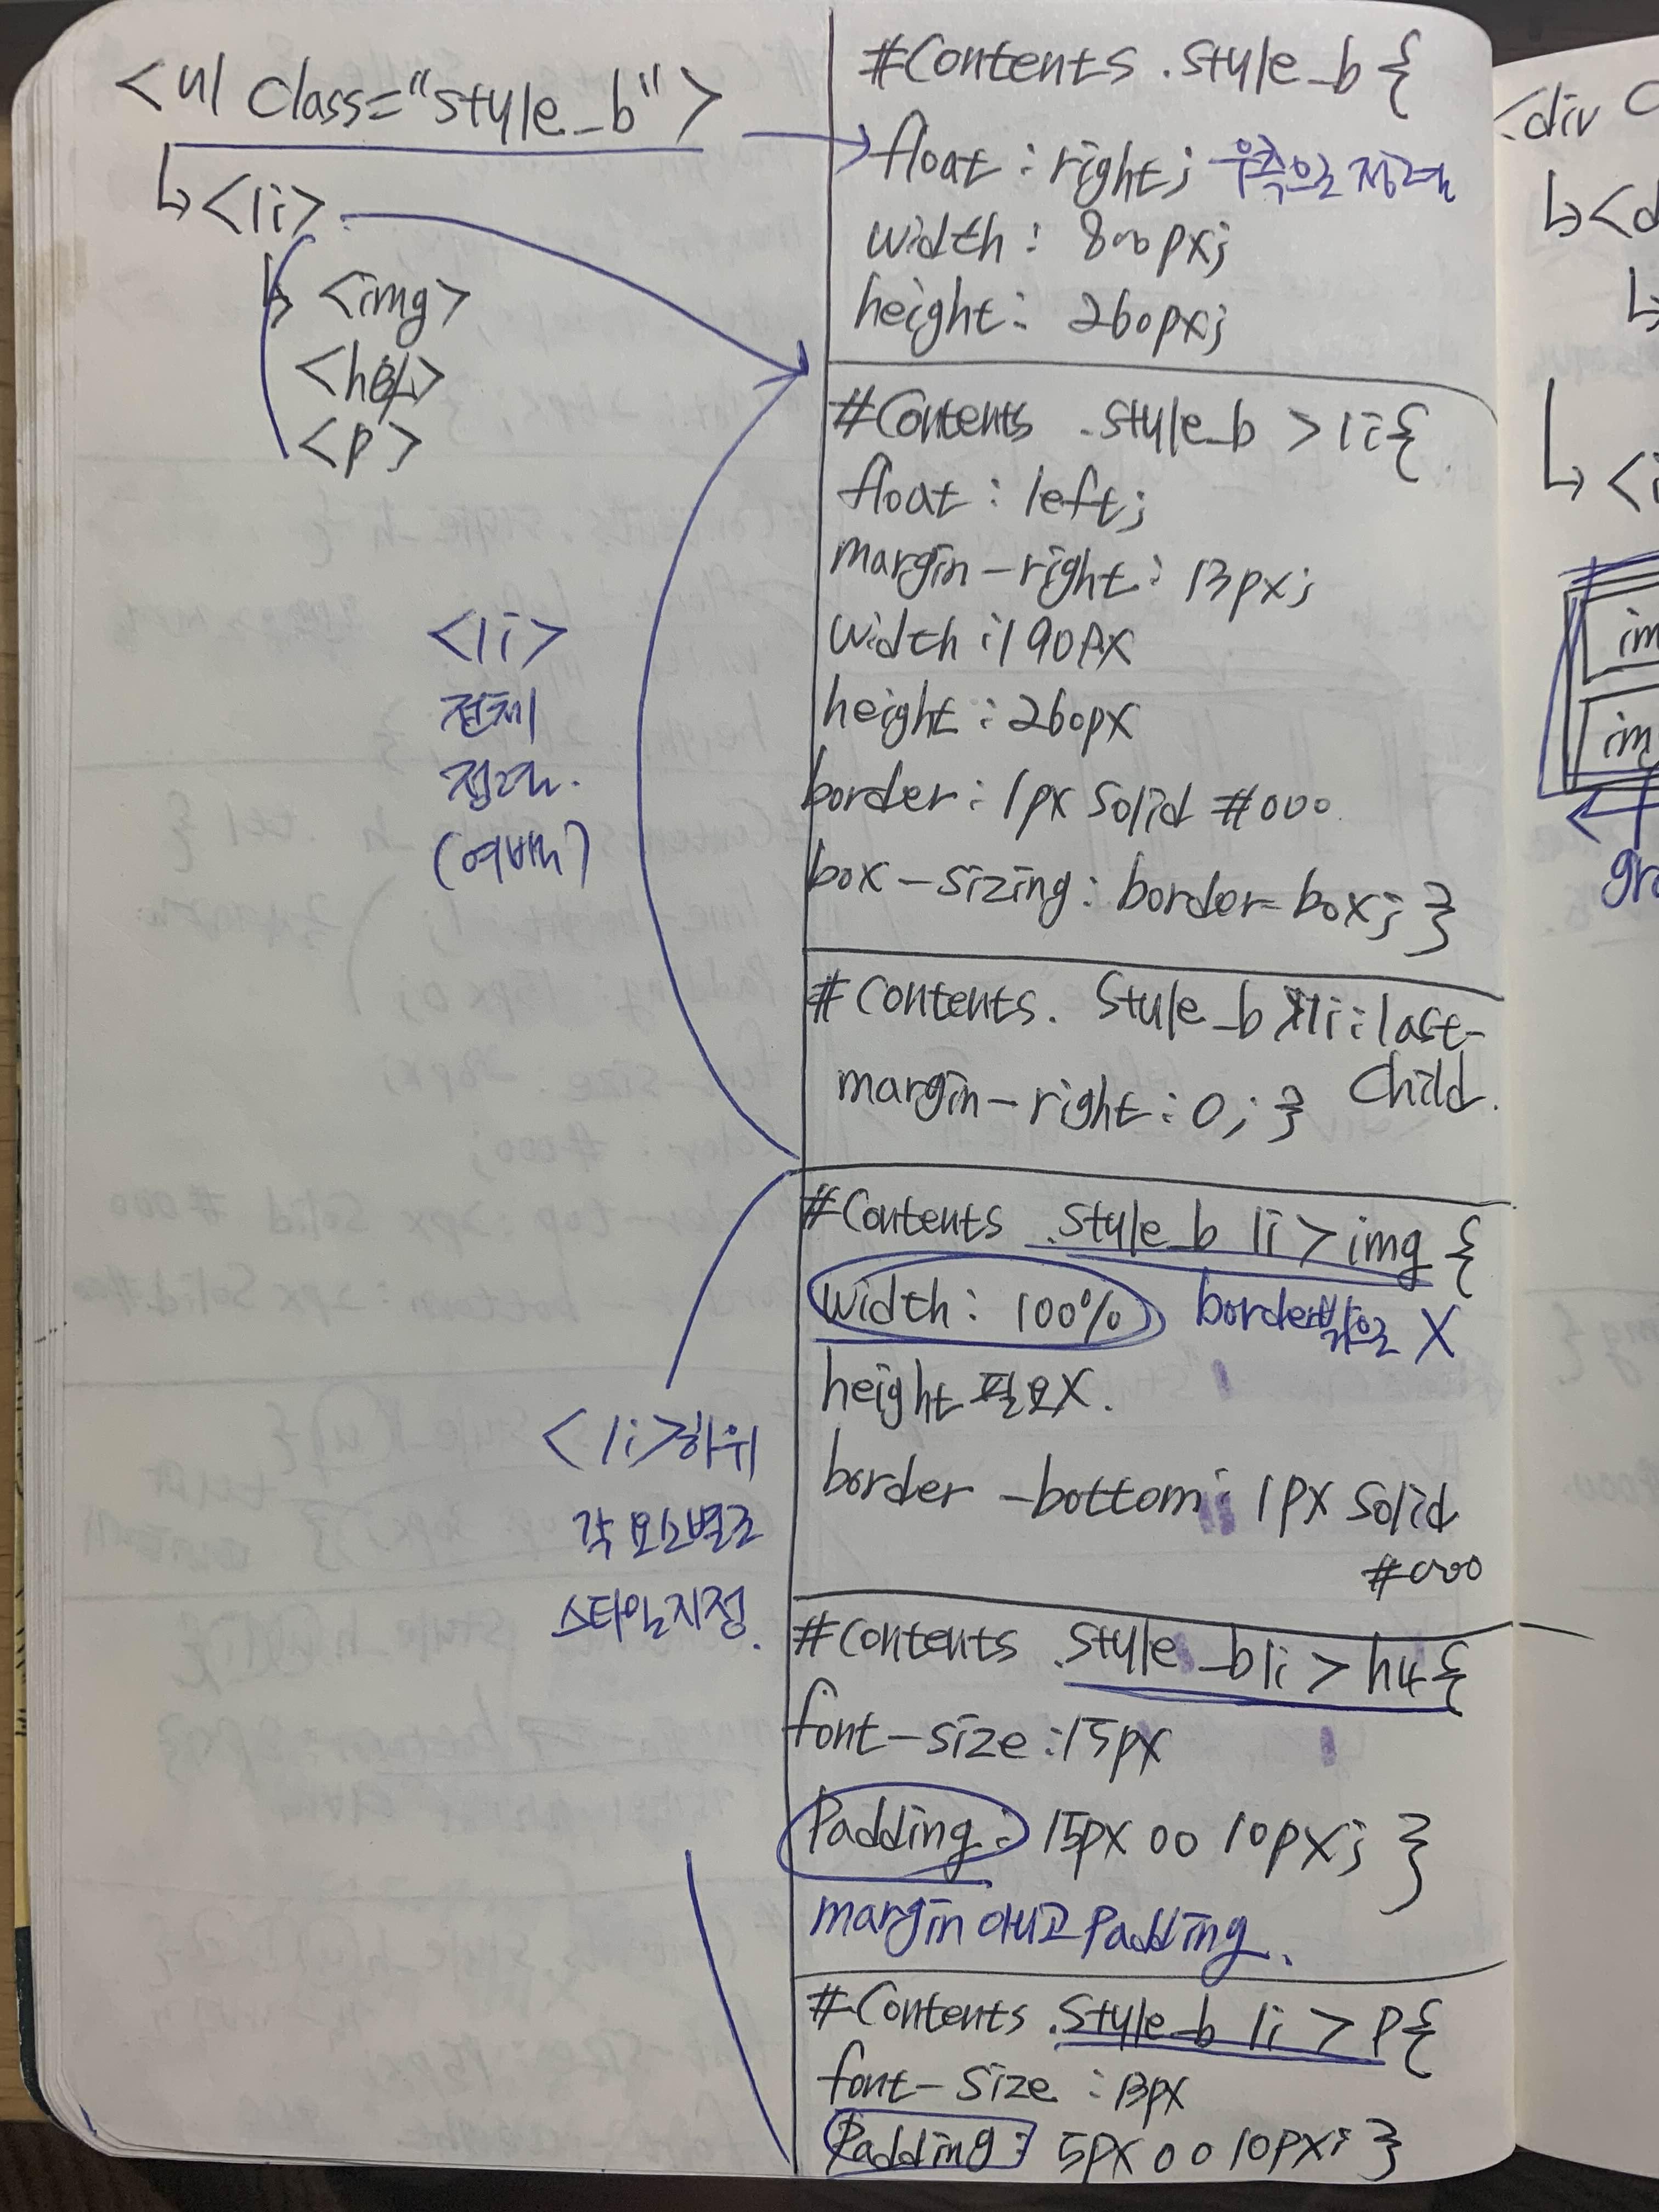 <ul class="style_b">
↳<li>
↳ <img>
<h4>
<p>
<li>
전체
정렬.
(여백)
<li>하위
각 요소별로
스타일지정.
#contents .style_b {
float : right; 우측으로 정렬
width : 800px;
height : 260px;
#contents .style_b > li {
float : left;
margin-right : 13px;
width : 190px
height : 260px
border : 1px solid #000
box-sizing : border-box; }
#contents. style_b >li:last-
child.
margin-right : 0; }
#contents .style_b li > img {
width : 100% border밖으로 X
height 필요X.
border-bottom : 1px solid
#000
#contents .style_b li > h4 {
font-size : 15px
Padding : 15px 0 0 10px; }
margin 아니고 Padding.
#contents .style_b li > p {
font-size : 13px
Padding : 5px 0 0 10px; }
<div
↳<d
↳
↳<i
im
im
gr